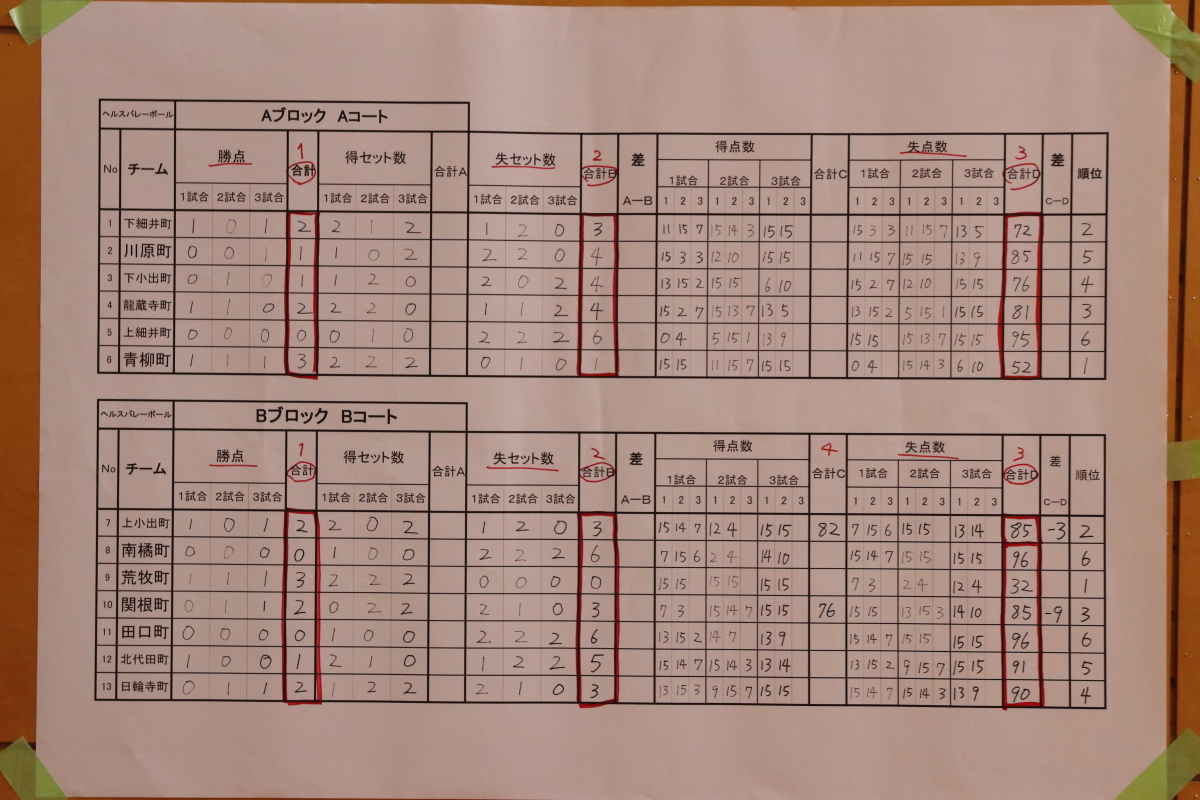 ヘルスバレーボール Aブロック Aコート
No チーム 勝点 1 合計 得セット数 合計A 失セット数 2 合計B 差 得点数 合計C 失点数 3 合計D 差 順位
1試合 2試合 3試合 1試合 2試合 3試合 1試合 2試合 3試合 A-B 1試合 2試合 3試合 1試合 2試合 3試合 C-D
1 2 3 1 2 3 1 2 3 1 2 3 1 2 3 1 2 3
1 下細井町 1 0 1 2 2 1 2 1 2 0 3 11 15 7 15 14 3 15 15 15 3 3 11 15 7 13 5 72 2
2 川原町 0 0 1 1 1 0 2 2 2 0 4 15 3 3 12 10 15 15 11 15 7 15 15 13 9 85 5
3 下小出町 0 1 0 1 1 2 0 2 0 2 4 13 15 2 15 15 6 10 15 2 7 12 10 15 15 76 4
4 龍蔵寺町 1 1 0 2 2 2 0 1 1 2 4 15 2 7 15 13 7 13 5 13 15 2 5 15 1 15 15 81 3
5 上細井町 0 0 0 0 0 1 0 2 2 2 6 0 4 5 15 1 13 9 15 15 15 13 7 15 15 95 6
6 青柳町 1 1 1 3 2 2 2 0 1 0 1 15 15 11 15 7 15 15 0 4 15 14 3 6 10 52 1
ヘルスバレーボール Bブロック Bコート
No チーム 勝点 1 合計 得セット数 合計A 失セット数 2 合計B 差 得点数 4 合計C 失点数 3 合計D 差 順位
1試合 2試合 3試合 1試合 2試合 3試合 1試合 2試合 3試合 A-B 1試合 2試合 3試合 1試合 2試合 3試合 C-D
1 2 3 1 2 3 1 2 3 1 2 3 1 2 3 1 2 3
7 上小出町 1 0 1 2 2 0 2 1 2 0 3 15 14 7 12 4 15 15 82 7 15 6 15 15 13 14 85 -3 2
8 南橘町 0 0 0 0 1 0 0 2 2 2 6 7 15 6 2 4 14 10 15 14 7 15 15 15 15 96 6
9 荒牧町 1 1 1 3 2 2 2 0 0 0 0 15 15 15 15 15 15 7 3 2 4 12 4 32 1
10 関根町 0 1 1 2 0 2 2 2 1 0 3 7 3 15 14 7 15 15 76 15 15 13 15 3 14 10 85 -9 3
11 田口町 0 0 0 0 1 0 0 2 2 2 6 13 15 2 14 7 13 9 15 14 7 15 15 15 15 96 6
12 北代田町 1 0 0 1 2 1 0 1 2 2 5 15 14 7 15 14 3 13 14 13 15 2 9 15 7 15 15 91 5
13 日輪寺町 0 1 1 2 1 2 2 2 1 0 3 13 15 3 9 15 7 15 15 15 14 7 15 14 3 13 9 90 4